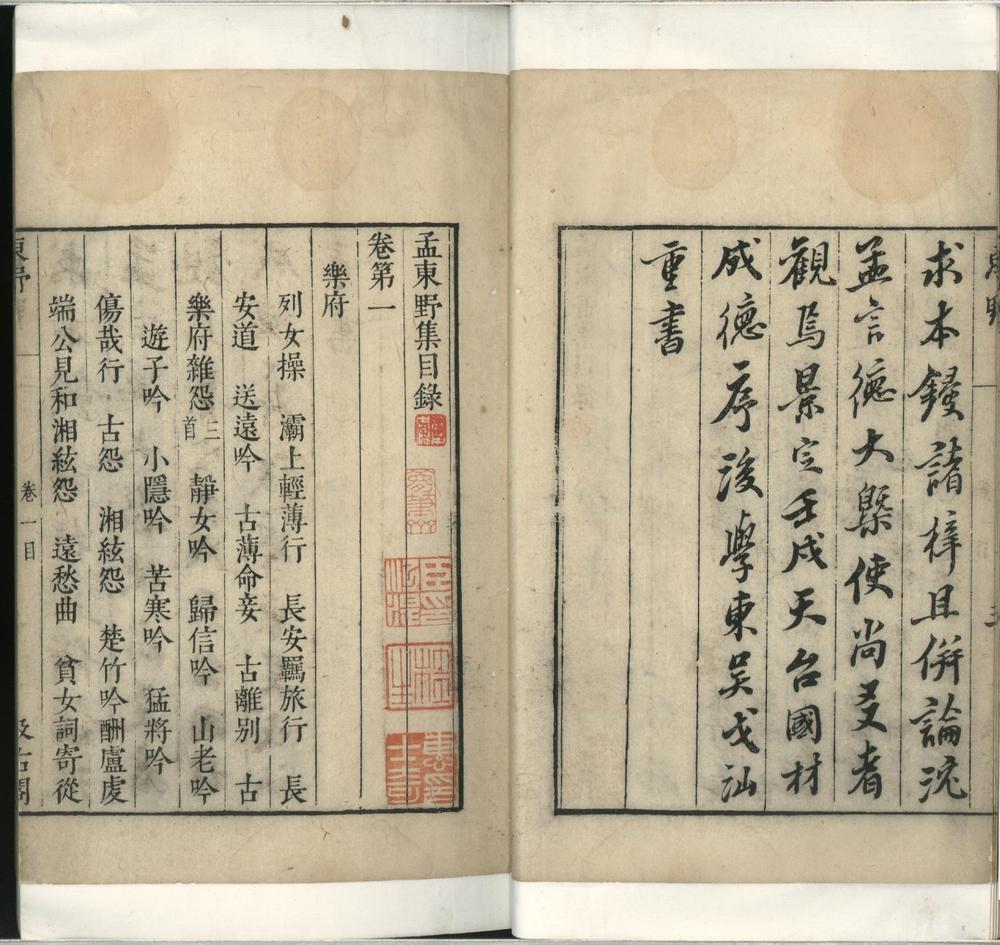 求本鋟諸梓且併論沈
孟言德大槩使尚友者
觀焉景定壬戌天台國材
成德序後學東吳戈汕
重書
孟東野集目錄
卷第一
樂府
列女操 灞上輕薄行 長安羈旅行 長
安道 送遠吟 古薄命妾 古離别 古
樂府雜怨三首 靜女吟 歸信吟 山老吟
遊子吟 小隱吟 苦寒吟 猛將吟
傷哉行 古怨 湘絃怨 楚竹吟酬盧虔
端公見和湘絃怨 遠愁曲 貧女詞寄從
卷一目